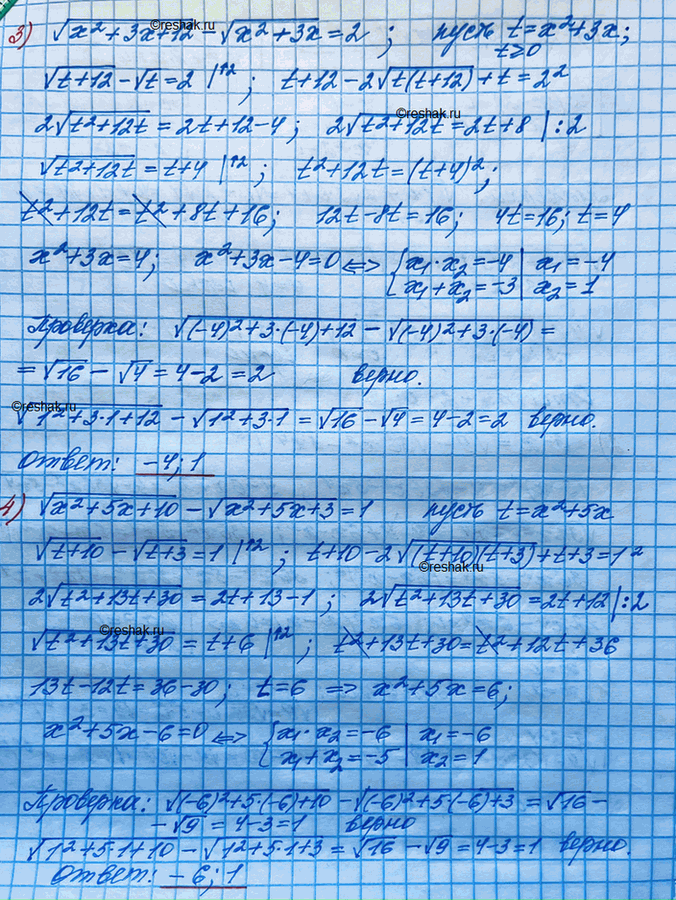 ©reshak.ru
3) √(x²+3x+12) - √(x²+3x) = 2 ; пусть t=x²+3x;
t≥0
√(t+12) - √t = 2 |↑2 ; t+12-2√(t(t+12))+t=2²
©reshak.ru
2√(t²+12t) = 2t+12-4 ; 2√(t²+12t) = 2t+8 |:2
√(t²+12t) = t+4 |↑2 ; t²+12t=(t+4)²;
t²+12t=t²+8t+16; 12t-8t=16; 4t=16; t=4
x²+3x=4; x²+3x-4=0 <=> { x₁·x₂=-4 | x₁=-4
x₁+x₂=-3 | x₂=1
Проверка: √((-4)²+3·(-4)+12) - √((-4)²+3·(-4)) =
= √16 - √4 = 4-2 = 2 верно.
©reshak.ru
√(1²+3·1+12) - √(1²+3·1) = √16 - √4 = 4-2=2 верно.
Ответ: -4; 1
4) √(x²+5x+10) - √(x²+5x+3) = 1 пусть t=x²+5x
√(t+10) - √(t+3) = 1 |↑2 ; t+10-2√((t+10)(t+3))+t+3=1²
©reshak.ru
2√(t²+13t+30) = 2t+13-1 ; 2√(t²+13t+30) = 2t+12 |:2
©reshak.ru
√(t²+13t+30) = t+6 |↑2 ; t²+13t+30=t²+12t+36
13t-12t=36-30 ; t=6 => x²+5x=6;
x²+5x-6=0 <=> { x₁·x₂=-6 | x₁=-6
x₁+x₂=-5 | x₂=1
Проверка: √((-6)²+5·(-6)+10) - √((-6)²+5(-6)+3) = √16 -
- √9 = 4-3=1 верно
√(1²+5·1+10) - √(1²+5·1+3) = √16 - √9 = 4-3=1 верно.
Ответ: -6; 1